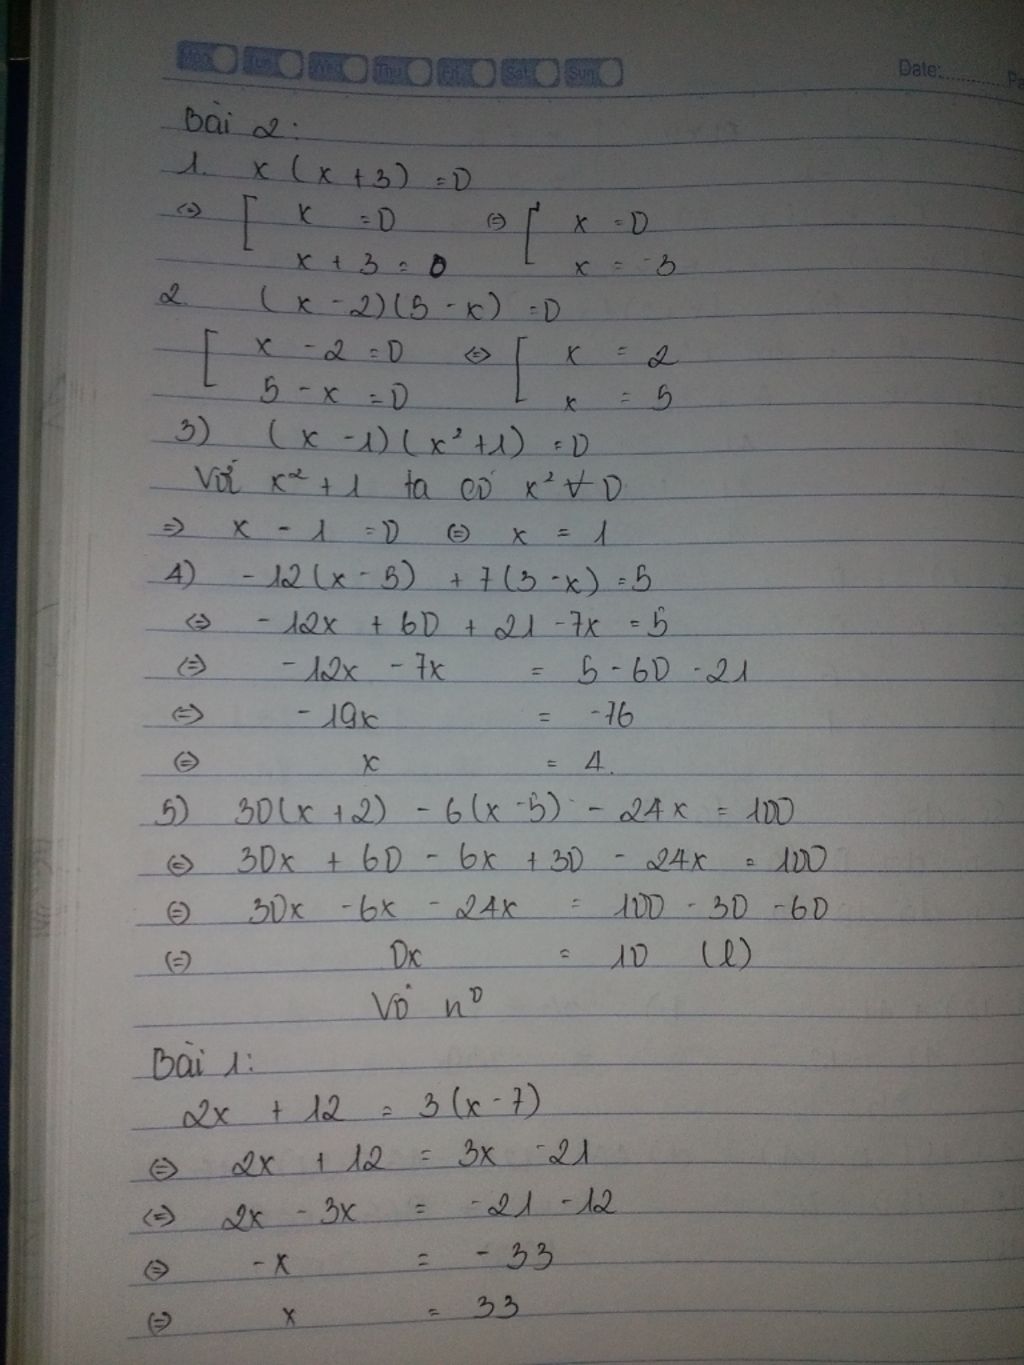 Mon Tue Wed Thu Fri Sat Sun Date:
Bài 2:
1. x(x+3) = 0
⇔ [ x = 0 ⇔ [ x = 0
x + 3 = 0 x = -3
2. (x - 2)(5 - x) = 0
[ x - 2 = 0 ⇔ [ x = 2
5 - x = 0 x = 5
3) (x - 1)(x² + 1) = 0
Với x² + 1 ta có x² ∀ 0
⇒ x - 1 = 0 ⇔ x = 1
4) -12(x - 5) + 7(3 - x) = 5
⇔ -12x + 60 + 21 - 7x = 5
⇔ -12x - 7x = 5 - 60 - 21
⇔ -19x = -76
⇔ x = 4.
5) 30(x + 2) - 6(x - 5) - 24x = 100
⇔ 30x + 60 - 6x + 30 - 24x = 100
⇔ 30x - 6x - 24x = 100 - 30 - 60
⇔ 0x = 10 (l)
Vô n⁰
Bài 1:
2x + 12 = 3(x - 7)
⇔ 2x + 12 = 3x - 21
⇔ 2x - 3x = -21 - 12
⇔ -x = -33
⇔ x = 33